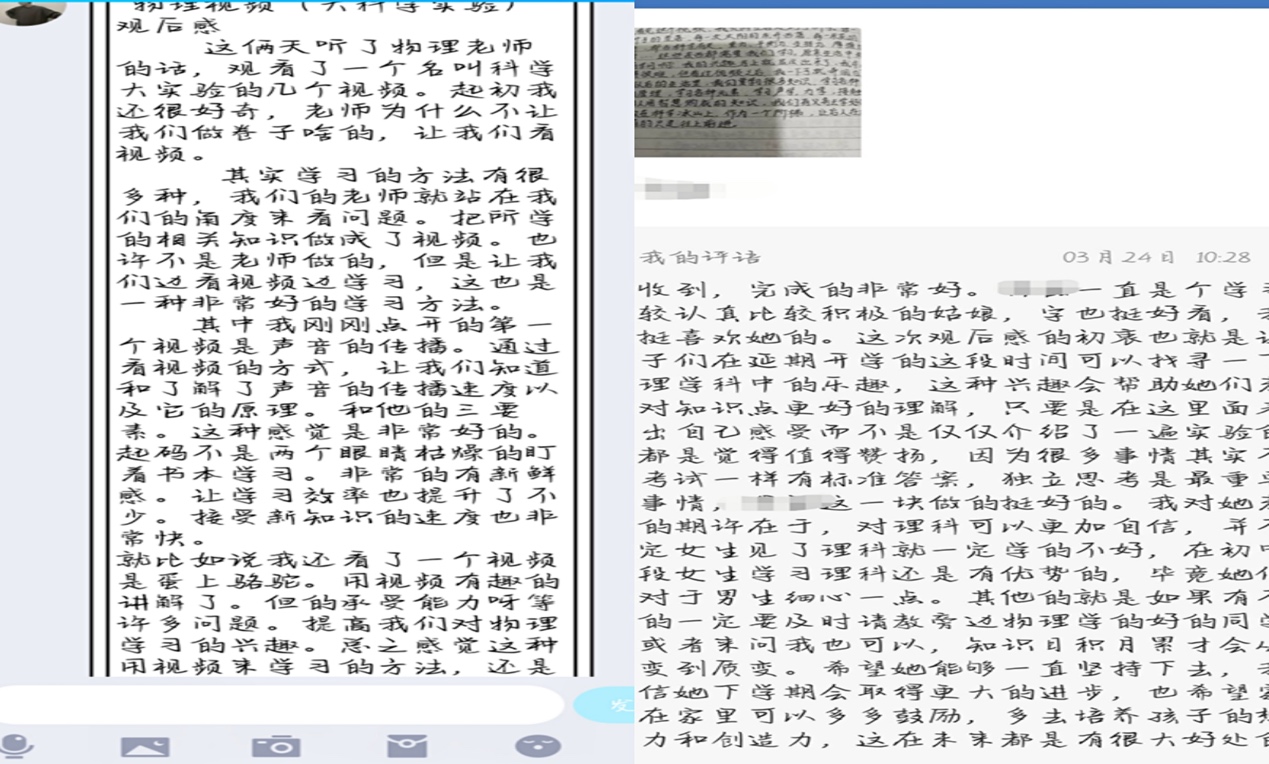 物理视频（大科学实验）
观后感
这俩天听了物理老师
的话，观看了一个名叫科学
大实验的几个视频。起初我
还很好奇，老师为什么不让
我们做卷子啥的，让我们看
视频。
其实学习的方法有很
多种，我们的老师就站在我
们的角度来看问题。把所学
的相关知识做成了视频。也
许不是老师做的，但是让我
们边看视频边学习，这也是
一种非常好的学习方法。
其中我刚刚点开的第一
个视频是声音的传播。通过
看视频的方式，让我们知道
和了解了声音的传播速度以
及它的原理。和他的三要
素。这种感觉是非常好的。
起码不是两个眼睛枯燥的盯
着书本学习。非常的有新鲜
感。让学习效率也提升了不
少。接受新知识的速度也非
常快。
就比如说我还看了一个视频
是蛋上骆驼。用视频有趣的
讲解了。但的承受能力呀等
许多问题。提高我们对物理
学习的兴趣。总之感觉这种
用视频来学习的方法，还是
发
我的评语 03月24日 10:28
收到，完成的非常好。 一直是个学
较认真比较积极的姑娘，字也挺好看，
挺喜欢她的。这次观后感的初衷也就是
子们在延期开学的这段时间可以找寻一
理学科中的乐趣，这种兴趣会帮助她们
对知识点更好的理解，只要是在这里面
出自己感受而不是仅仅介绍了一遍实验
都是觉得值得赞扬，因为很多事情其实
考试一样有标准答案，独立思考是最重
事情， 这一块做的挺好的。我对她
的期许在于，对理科可以更加自信，并
定女生见了理科就一定学的不好，在初
段女生学习理科还是有优势的，毕竟她
对于男生细心一点。其他的就是如果有
的一定要及时请教旁边物理学的好的同
或者来问我也可以，知识日积月累才会
变到质变。希望她能够一直坚持下去，
信她下学期会取得更大的进步，也希望
在家里可以多多鼓励，多去培养孩子的
力和创造力，这在未来都是有很大好处